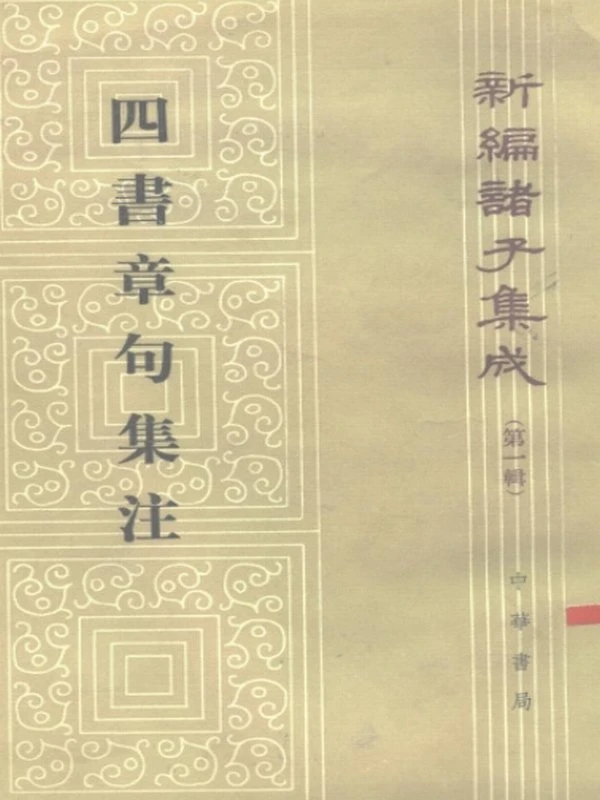 新編諸子集成
（第一輯）
中華書局
四書章句集注